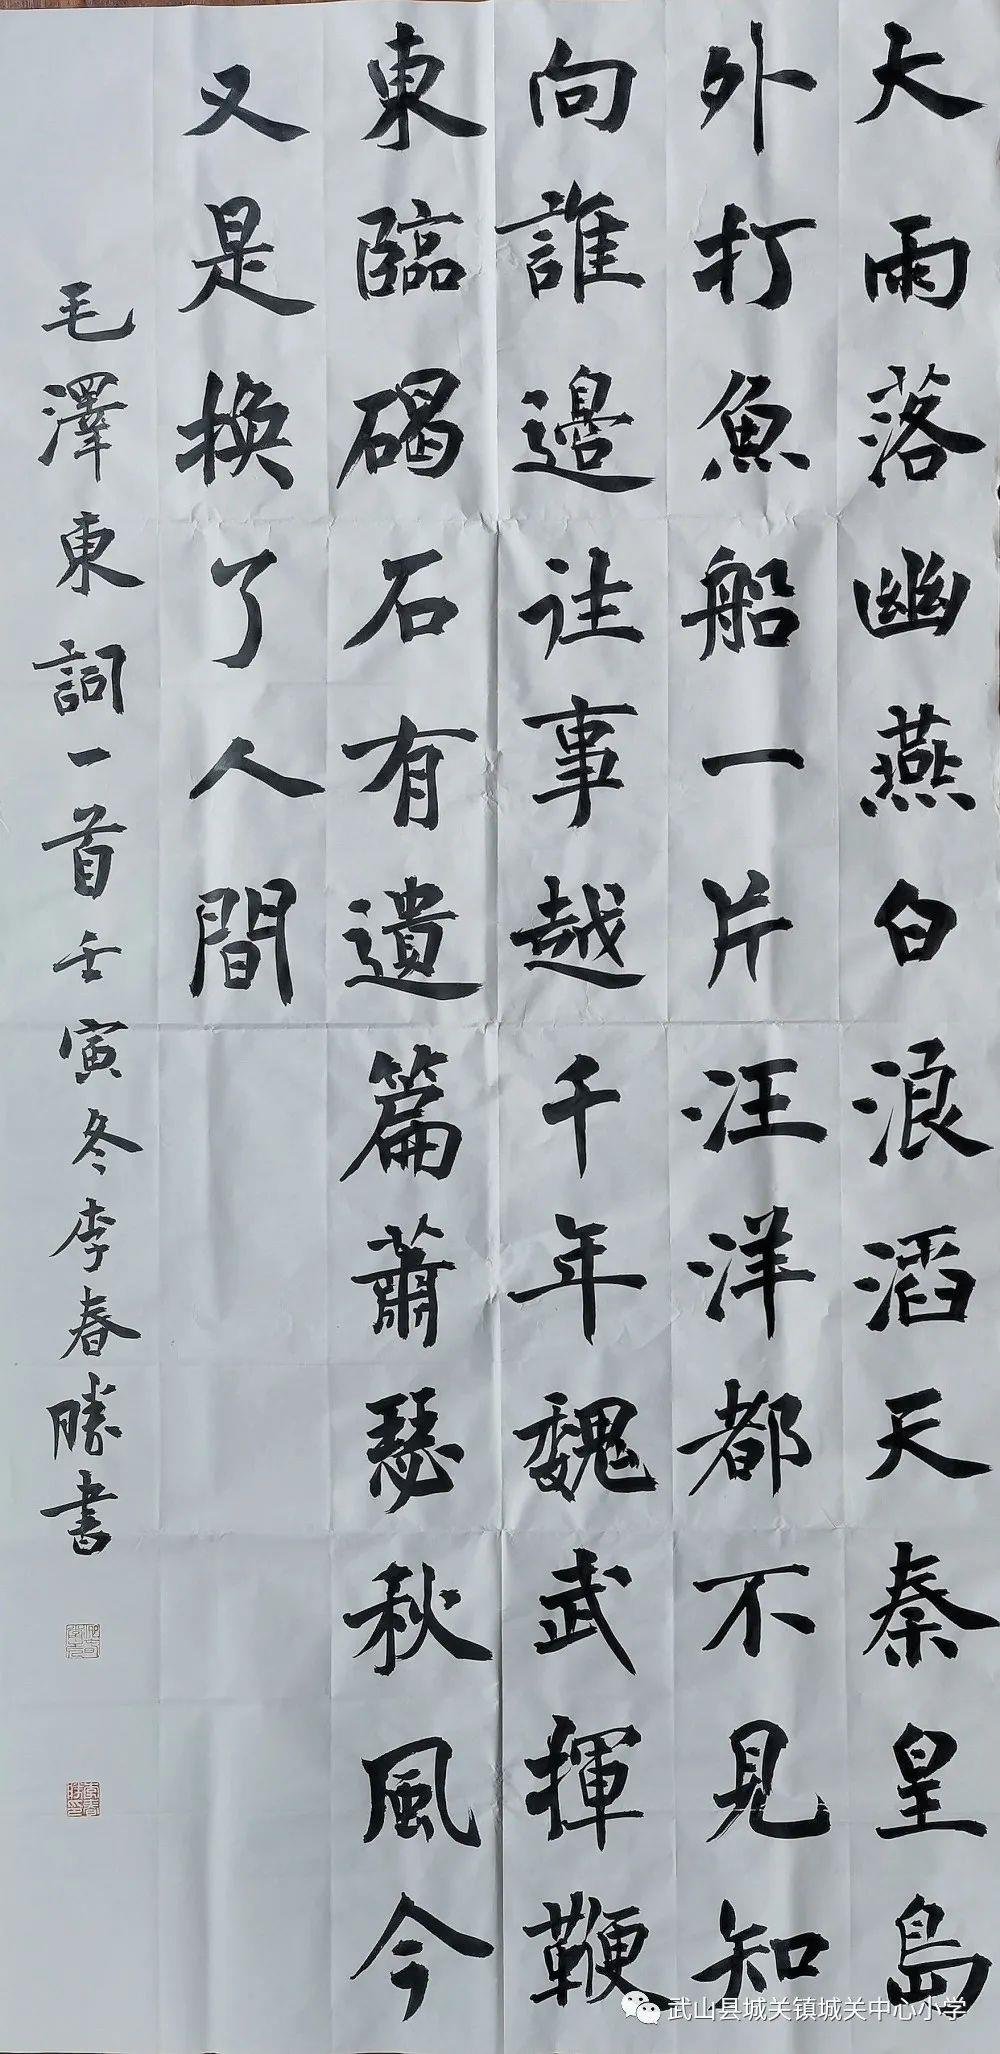 大雨落幽燕白浪滔天秦皇島
外打魚船一片汪洋都不見知
向誰邊往事越千年魏武揮鞭
東臨碣石有遺篇蕭瑟秋風今
又是換了人間
毛澤東詞一首壬寅冬李春勝書
武山县城关镇城关中心小学